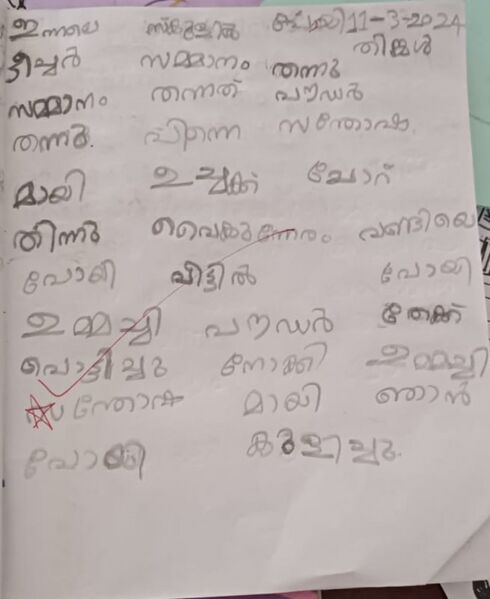 ഇന്നലെ സ്കൂളിൽ പോയി 11-3-2024
തിങ്കൾ
ടീച്ചർ സമ്മാനം തന്നു
സമ്മാനം തന്നത് പൗഡർ
തന്നു. പിന്നെ സന്തോഷ
മായി ഉച്ചക്ക് ചോറ്
തിന്നു വൈകുന്നേരം വണ്ടിയെ
പോയി വീട്ടിൽ പോയി
ഉമ്മച്ചി പൗഡർ തേക്ക്
പൊട്ടിച്ചു നോക്കി ഉമ്മച്ചി
സന്തോഷ മായി ഞാൻ
പോയി കുളിച്ചു.